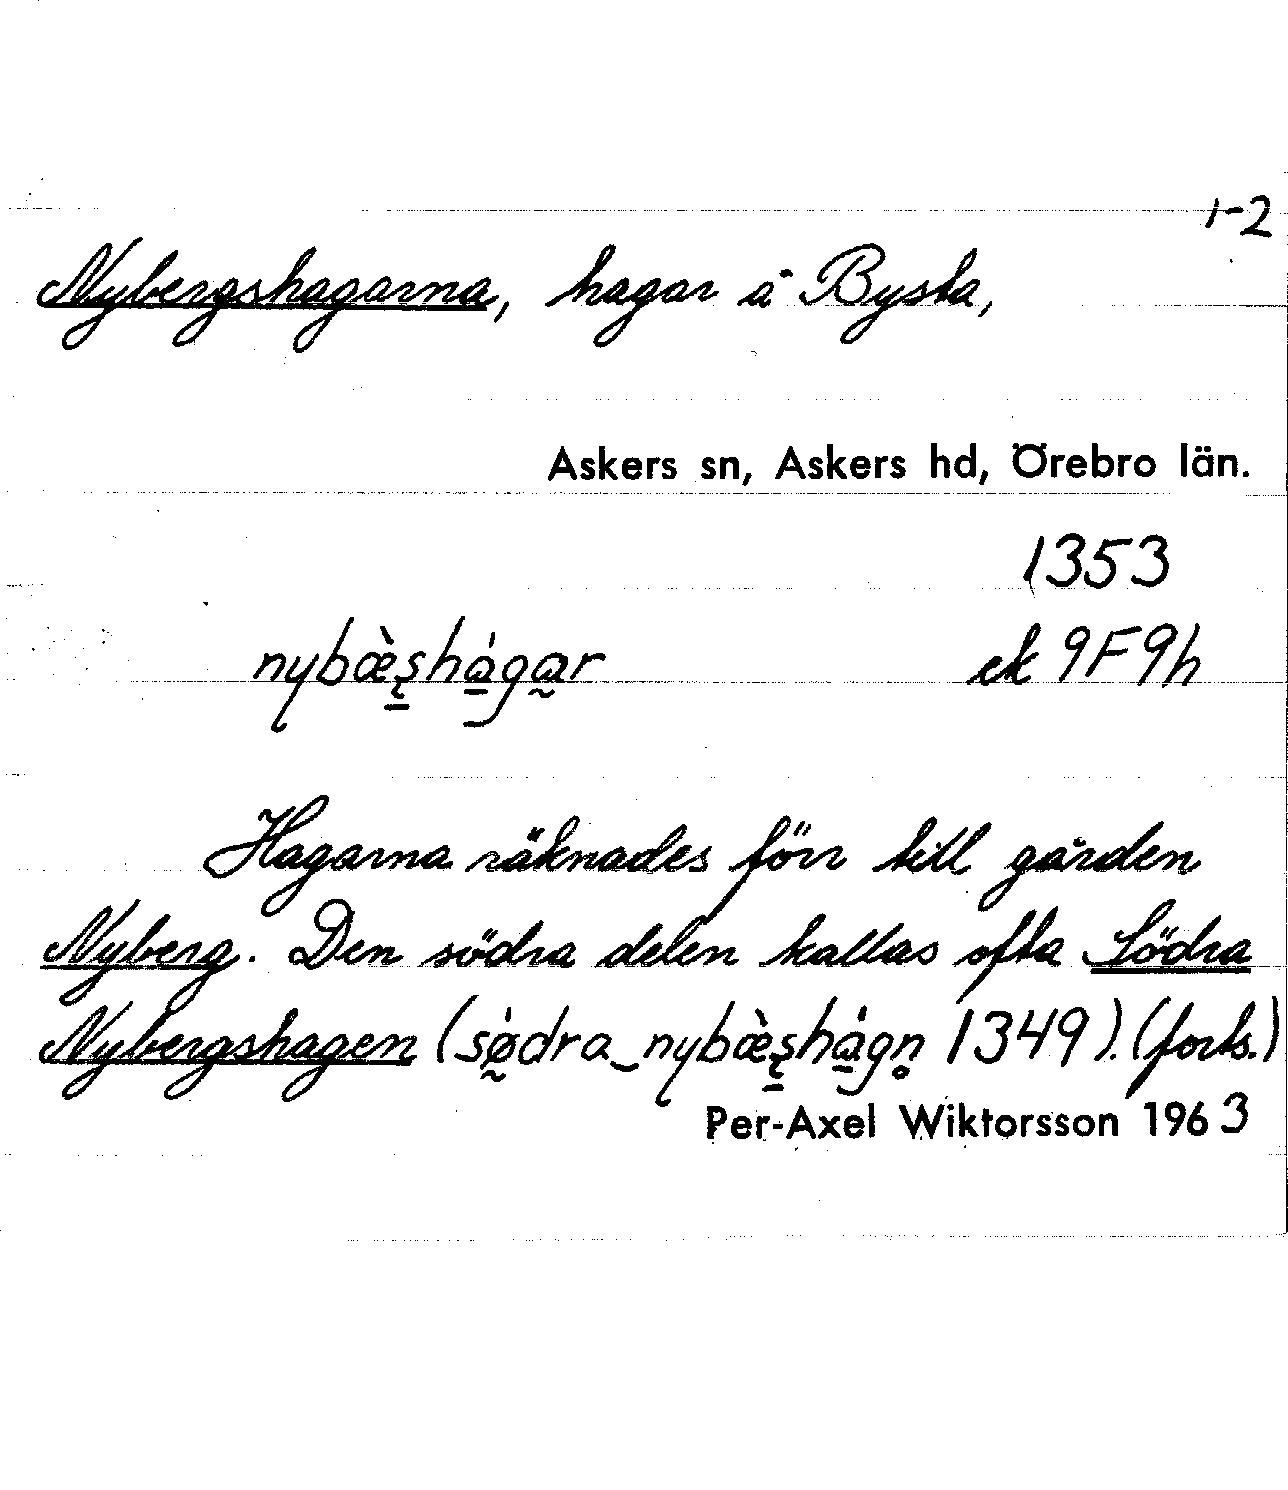 1-2
Nybergshagarna, hagar å Bysta,
Askers sn, Askers hd, Örebro län.
1353
nybæ̀s̨̱há̱ga̰r ek 9F9h
Hagarna räknades förr till gården
Nyberg. Den södra delen kallas ofta Södra
Nybergshagen (sǿ̰dra‿nybæ̀s̨̱há̱gn̥ 1349). (forts.)
Per-Axel Wiktorsson 1963